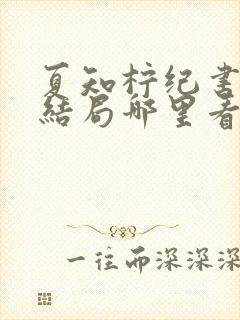 夏知柠纪书
结局哪里看
一往而深深深